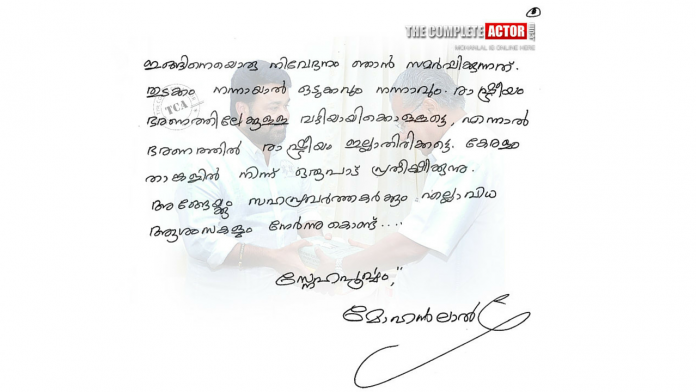 THE COMPLETE ACTOR .COM
MOHANLAL IS ONLINE HERE
ഇങ്ങിനെയൊരു നിവേദനം ഞാൻ സമർപ്പിക്കുന്നത്.
തുടക്കം നന്നായാൽ ഒടുക്കവും നന്നാവും. രാഷ്ട്രീയം
TCA
ഭരണത്തിലേക്കുള്ള വഴിയായിക്കൊള്ളട്ടെ, എന്നാൽ
ഭരണത്തിൽ രാഷ്ട്രീയം ഇല്ലാതിരിക്കട്ടെ. കേരളം
താങ്കളിൽ നിന്ന് ഒരുപാട് പ്രതീക്ഷിക്കുന്നു.
അങ്ങേയ്ക്കും സഹപ്രവർത്തകർക്കും എല്ലാവിധ
ആശംസകളും നേർന്നുകൊണ്ട്....
സ്നേഹപൂർവ്വം,
മോഹൻലാൽ